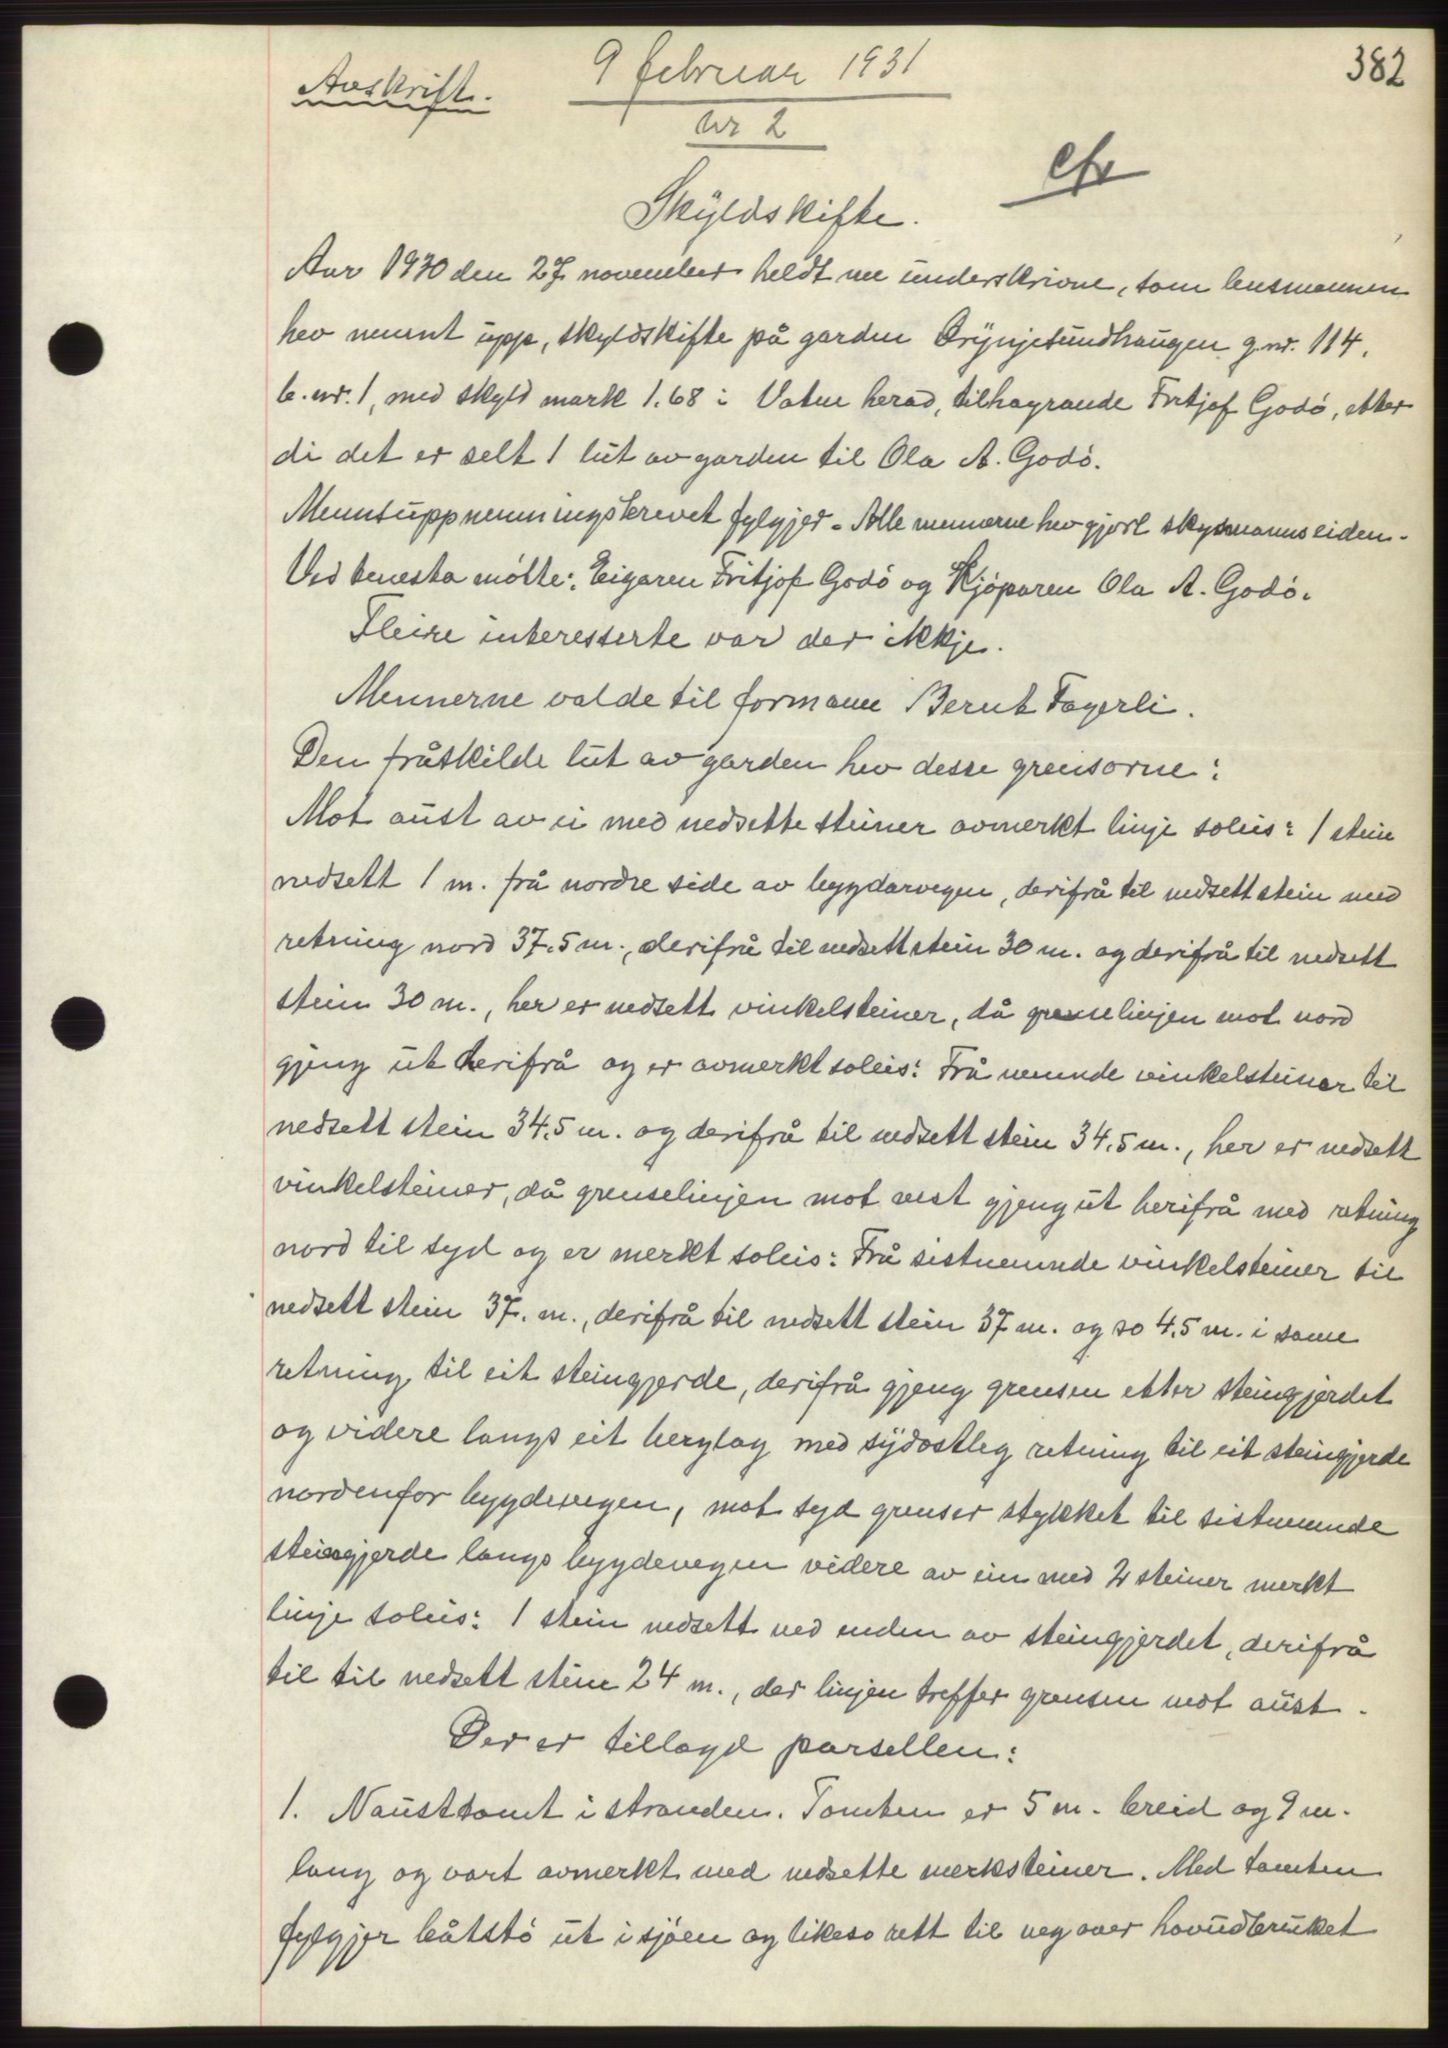 382
Avskrift.
9 februar 1931
nr 2
Skyldskifte.
Aar 1930 den 27 november heldt me underskrivne, som lensmannen
hev nemnt upp, skyldskifte på garden Brynjesundhaugen g.nr. 114,
b.nr. 1, med skyld mark 1.68 i Vatne herad, tilhøyrande Fritjof Godö, etter
di det er selt 1 lut av garden til Ola A. Godö.
Mennsuppnemningsbrevet fylgjer. Alle mennerne hev gjort skynsmannseiden.
Ved tenesta mötte: Eigaren Fritjof Godö og Kjöparen Ola A. Godö.
Fleire interesserte var der ikkje.
Mennerne valde til formann Bernt Fagerli.
Den fråskilde lut av garden hev desse grensorne:
Mot aust av ei med nedsette steiner avmerkt linje soleis: 1 stein
nedsett 1 m. frå nordre side av bygdarvegen, derifrå til nedsett stein med
retning nord 37.5 m., derifrå til nedsett stein 30 m. og derifrå til nedsett
stein 30 m., her er nedsett vinkelsteiner, då grenselinjen mot nord
gjeng ut herifrå og er avmerkt soleis: Frå nemnde vinkelsteiner til
nedsett stein 34.5 m. og derifrå til nedsett stein 34.5 m., her er nedsett
vinkelsteiner, då grenselinjen mot vest gjeng ut herifrå med retning
nord til syd og er merkt soleis: Frå sistnemnde vinkelsteiner til
nedsett stein 37. m., derifrå til nedsett stein 37 m. og so 4.5 m. i same
retning til eit steingjerde, derifrå gjeng grensen etter steingjerdet
og videre langs eit berglag med sydostleg retning til eit steingjerde
nordenfor bygdevegen, mot syd grenser stykket til sistnemnde
steingjerde langs bygdevegen videre av ein med 2 steiner merkt
linje soleis: 1 stein nedsett ved enden av steingjerdet, derifrå
til til nedsett stein 24 m., der linjen treffer grensen mot aust.
Der er tillagd parsellen:
1. Nausttomt i stranden. Tomten er 5 m. breid og 9 m.
lang og vart avmerkt med nedsette merksteiner. Med tomten
fylgjer båtstö ut i sjöen og likeso rett til veg over hovudbruket